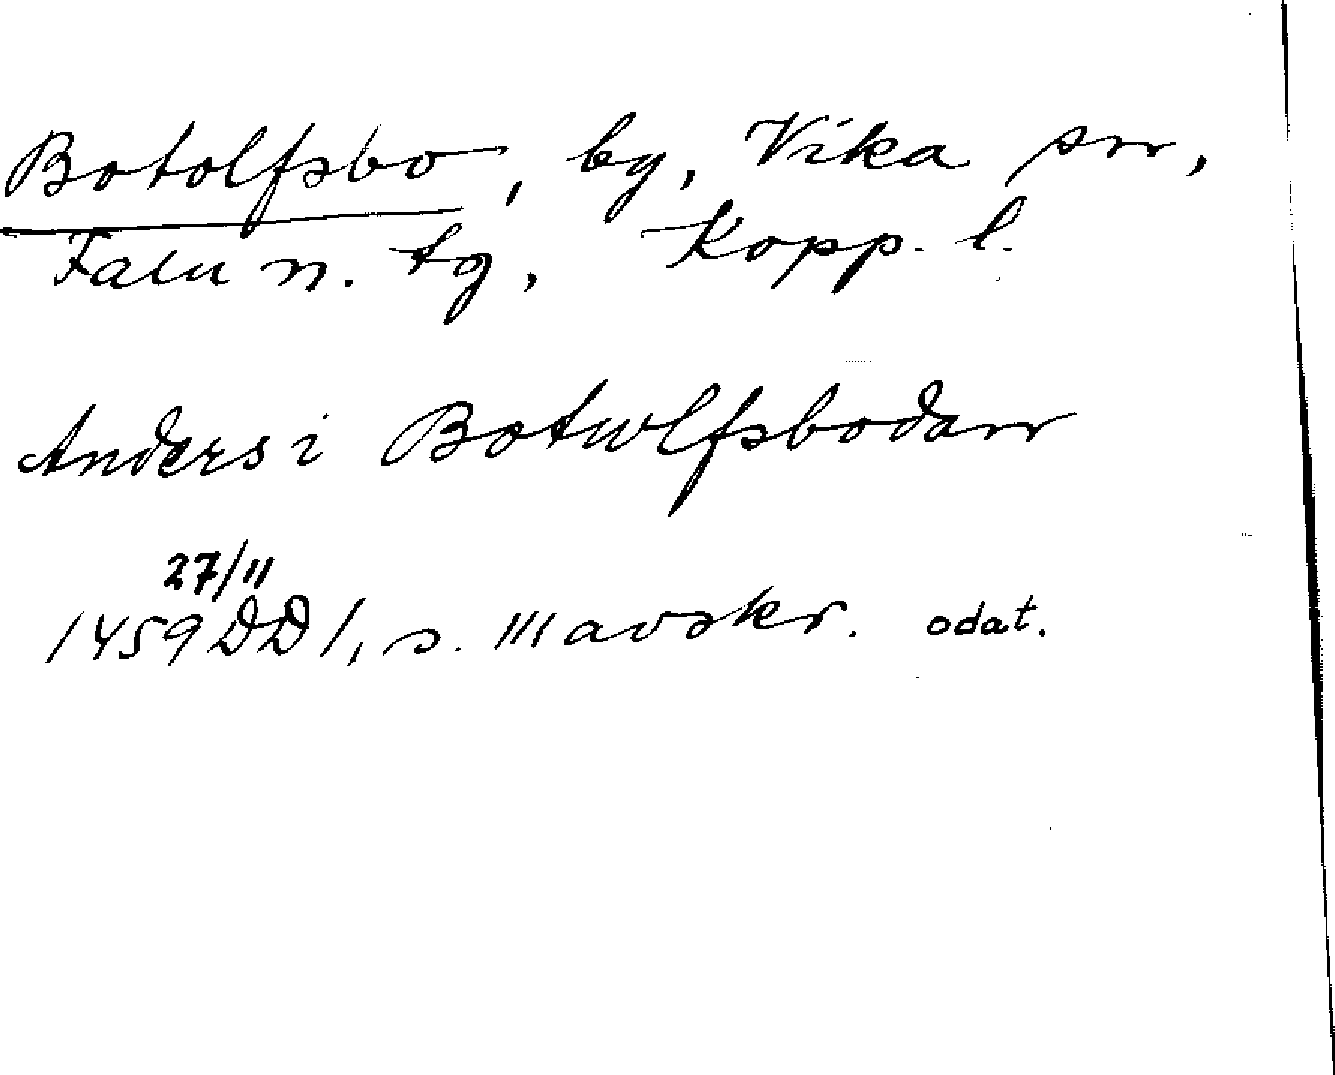 Botolfsbo, by, Vika sn,
Falu n. tg, Kopp. l.
Anders i Botwlfsbodan
27/11
1459 DD 1, s. 111 avskr. odat.